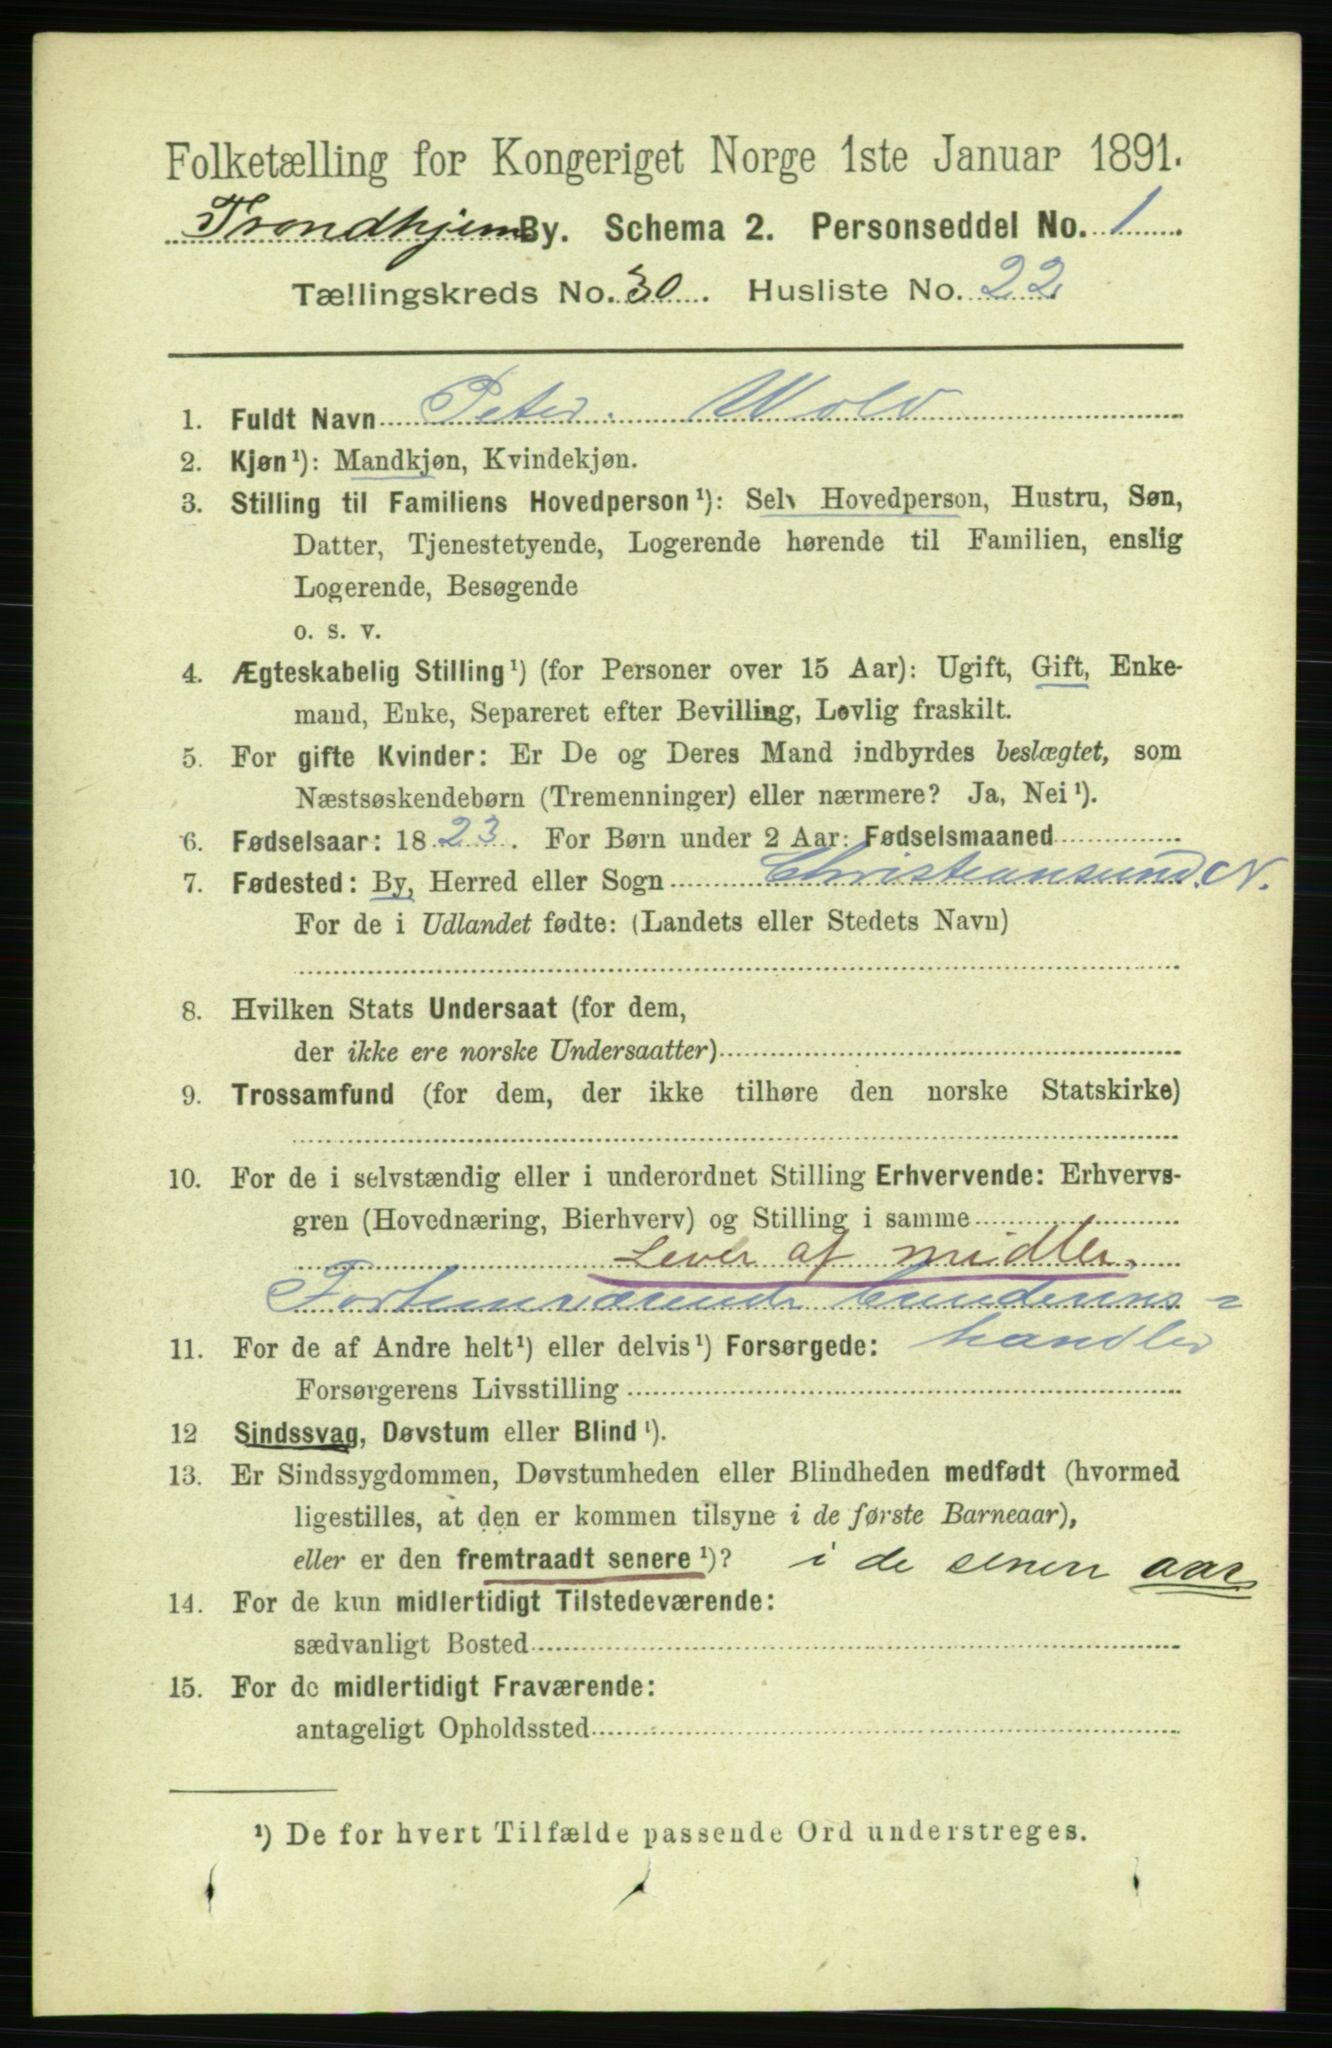 Folketælling for Kongeriget Norge 1ste Januar 1891.
Trondhjem By. Schema 2. Personseddel No. 1
Tællingskreds No. 30. Husliste No. 22
1. Fuldt Navn Peter Wold
2. Kjøn¹): Mandkjøn, Kvindekjøn.
3. Stilling til Familiens Hovedperson¹): Selv Hovedperson, Hustru, Søn,
Datter, Tjenestetyende, Logerende hørende til Familien, enslig
Logerende, Besøgende
o. s. v.
4. Ægteskabelig Stilling¹) (for Personer over 15 Aar): Ugift, Gift, Enke-
mand, Enke, Separeret efter Bevilling, Lovlig fraskilt.
5. For gifte Kvinder: Er De og Deres Mand indbyrdes beslægtet, som
Næstsøskendebørn (Tremenninger) eller nærmere? Ja, Nei¹).
6. Fødselsaar: 1823. For Børn under 2 Aar: Fødselsmaaned
7. Fødested: By, Herred eller Sogn Christiansund. N.
For de i Udlandet fødte: (Landets eller Stedets Navn)
8. Hvilken Stats Undersaat (for dem,
der ikke ere norske Undersaatter)
9. Trossamfund (for dem, der ikke tilhøre den norske Statskirke)
10. For de i selvstændig eller i underordnet Stilling Erhvervende: Erhvervs-
gren (Hovednæring, Bierhverv) og Stilling i samme
Lever af midler.
11. For de af Andre helt¹) eller delvis¹) Forsørgede: handler
Forsørgerens Livsstilling
12 Sindssvag, Døvstum eller Blind¹).
13. Er Sindssygdommen, Døvstumheden eller Blindheden medfødt (hvormed
ligestilles, at den er kommen tilsyne i de første Barneaar),
eller er den fremtraadt senere¹)? i de senere aar
14. For de kun midlertidigt Tilstedeværende:
sædvanligt Bosted
15. For de midlertidigt Fraværende:
antageligt Opholdssted
¹) De for hvert Tilfælde passende Ord understreges.